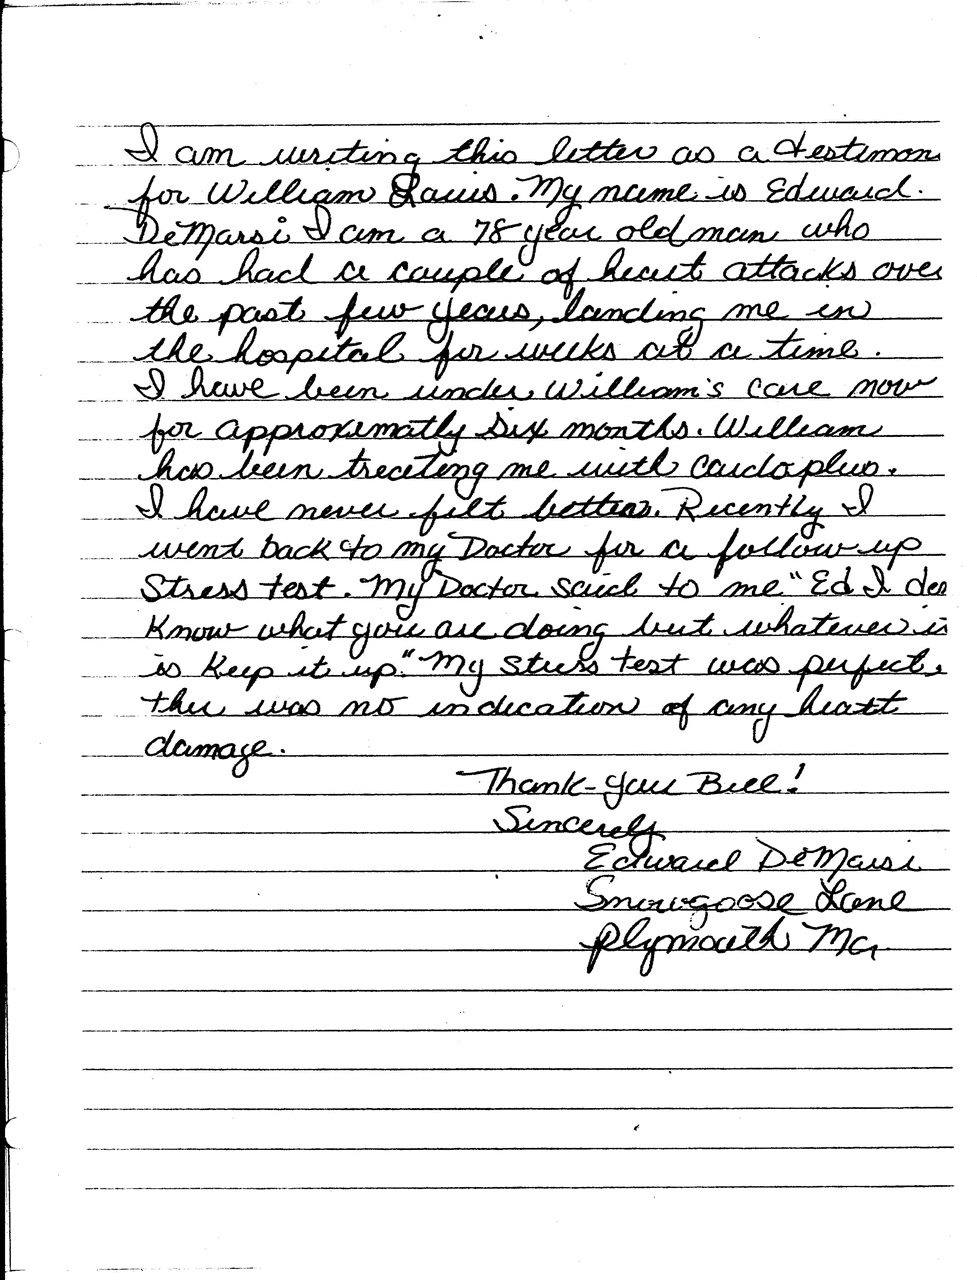 I am writing this letter as a testimon
for William Davis. My name is Edward
DeMarsi I am a 78 year old man who
has had a couple of heart attacks over
the past few years, landing me in
the hospital for weeks at a time.
I have been under William's care now
for approximatly six months. William
has been treating me with cardoplus.
I have never felt better. Recently I
went back to my Doctor for a follow up
Stress test. My Doctor said to me "Ed I don
Know what you are doing but whatever is
is Keep it up." My stress test was perfect,
ther was no indication of any heart
damage.
Thank-you Bill!
Sincerely
Edward DeMarsi
Snowgoose Lane
Plymouth Ma.